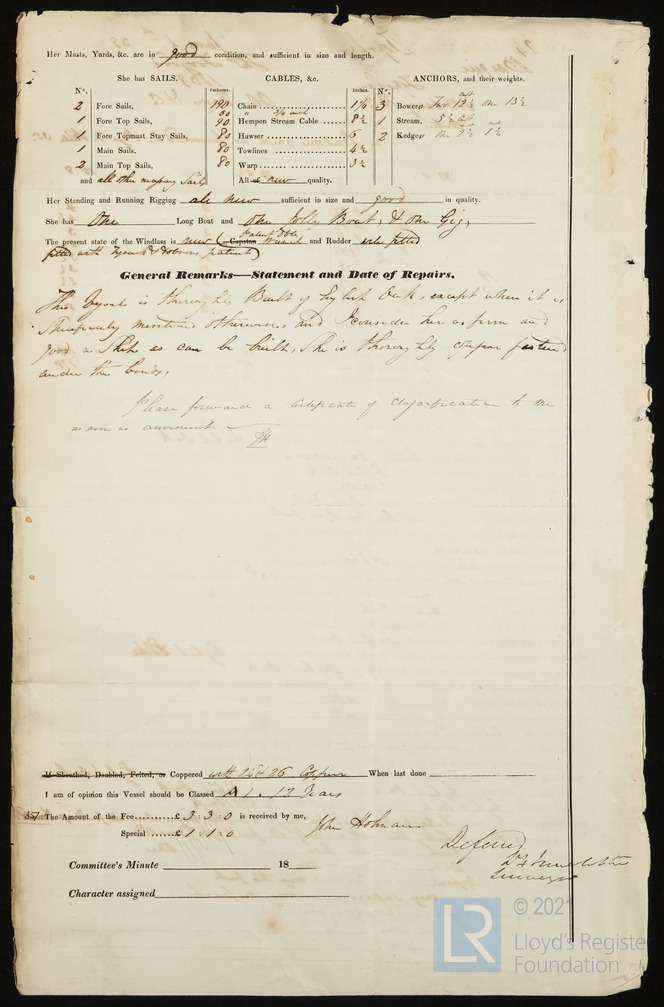 Her Masts, Yards, &c. are in good condition, and sufficient in size and length.
She has SAILS. CABLES, &c. ANCHORS, and their weights.
N°. Fathoms. Inches. N°.
2 Fore Sails, 190 Chain 1 3 Bowers Two 12½ one 13½
1 Fore Top Sails, 90 Hempen Stream Cable 8½ 1 Stream, 5½
1 Fore Topmast Stay Sails, 80 Hawser 6 2 Kedges one 1½
1 Main Sails, 80 Towlines 4½
2 Main Top Sails, 80 Warp 3½
and all other necessary Sails All new quality.
Her Standing and Running Rigging all new sufficient in size and good in quality.
She has One Long Boat and one Jolly Boat, & one Gig,
The present state of the Windlass is new Capstan Winch and Rudder well fitted
fitted with patent
General Remarks—Statement and Date of Repairs.
This Vessel is thoroughly Built of English Oak, except when it is
mentioned otherwise, and I consider her as firm and
good a Ship as can be built, She is thoroughly copper fastened
under the bends,
Please forward a Certificate of Classification to me
as soon as convenient
If Sheathed, Doubled, Felted, or Coppered with 24 & 26 Copper When last done
I am of opinion this Vessel should be Classed A 1. 12 Years
The Amount of the Fee £ 3 : 3 : 0 is received by me,
Special £ 1 : 1 : 0 John Holman
Deferred
Surveyor
Committee's Minute 18
Character assigned
© 2021
LR Lloyd's Register
Foundation